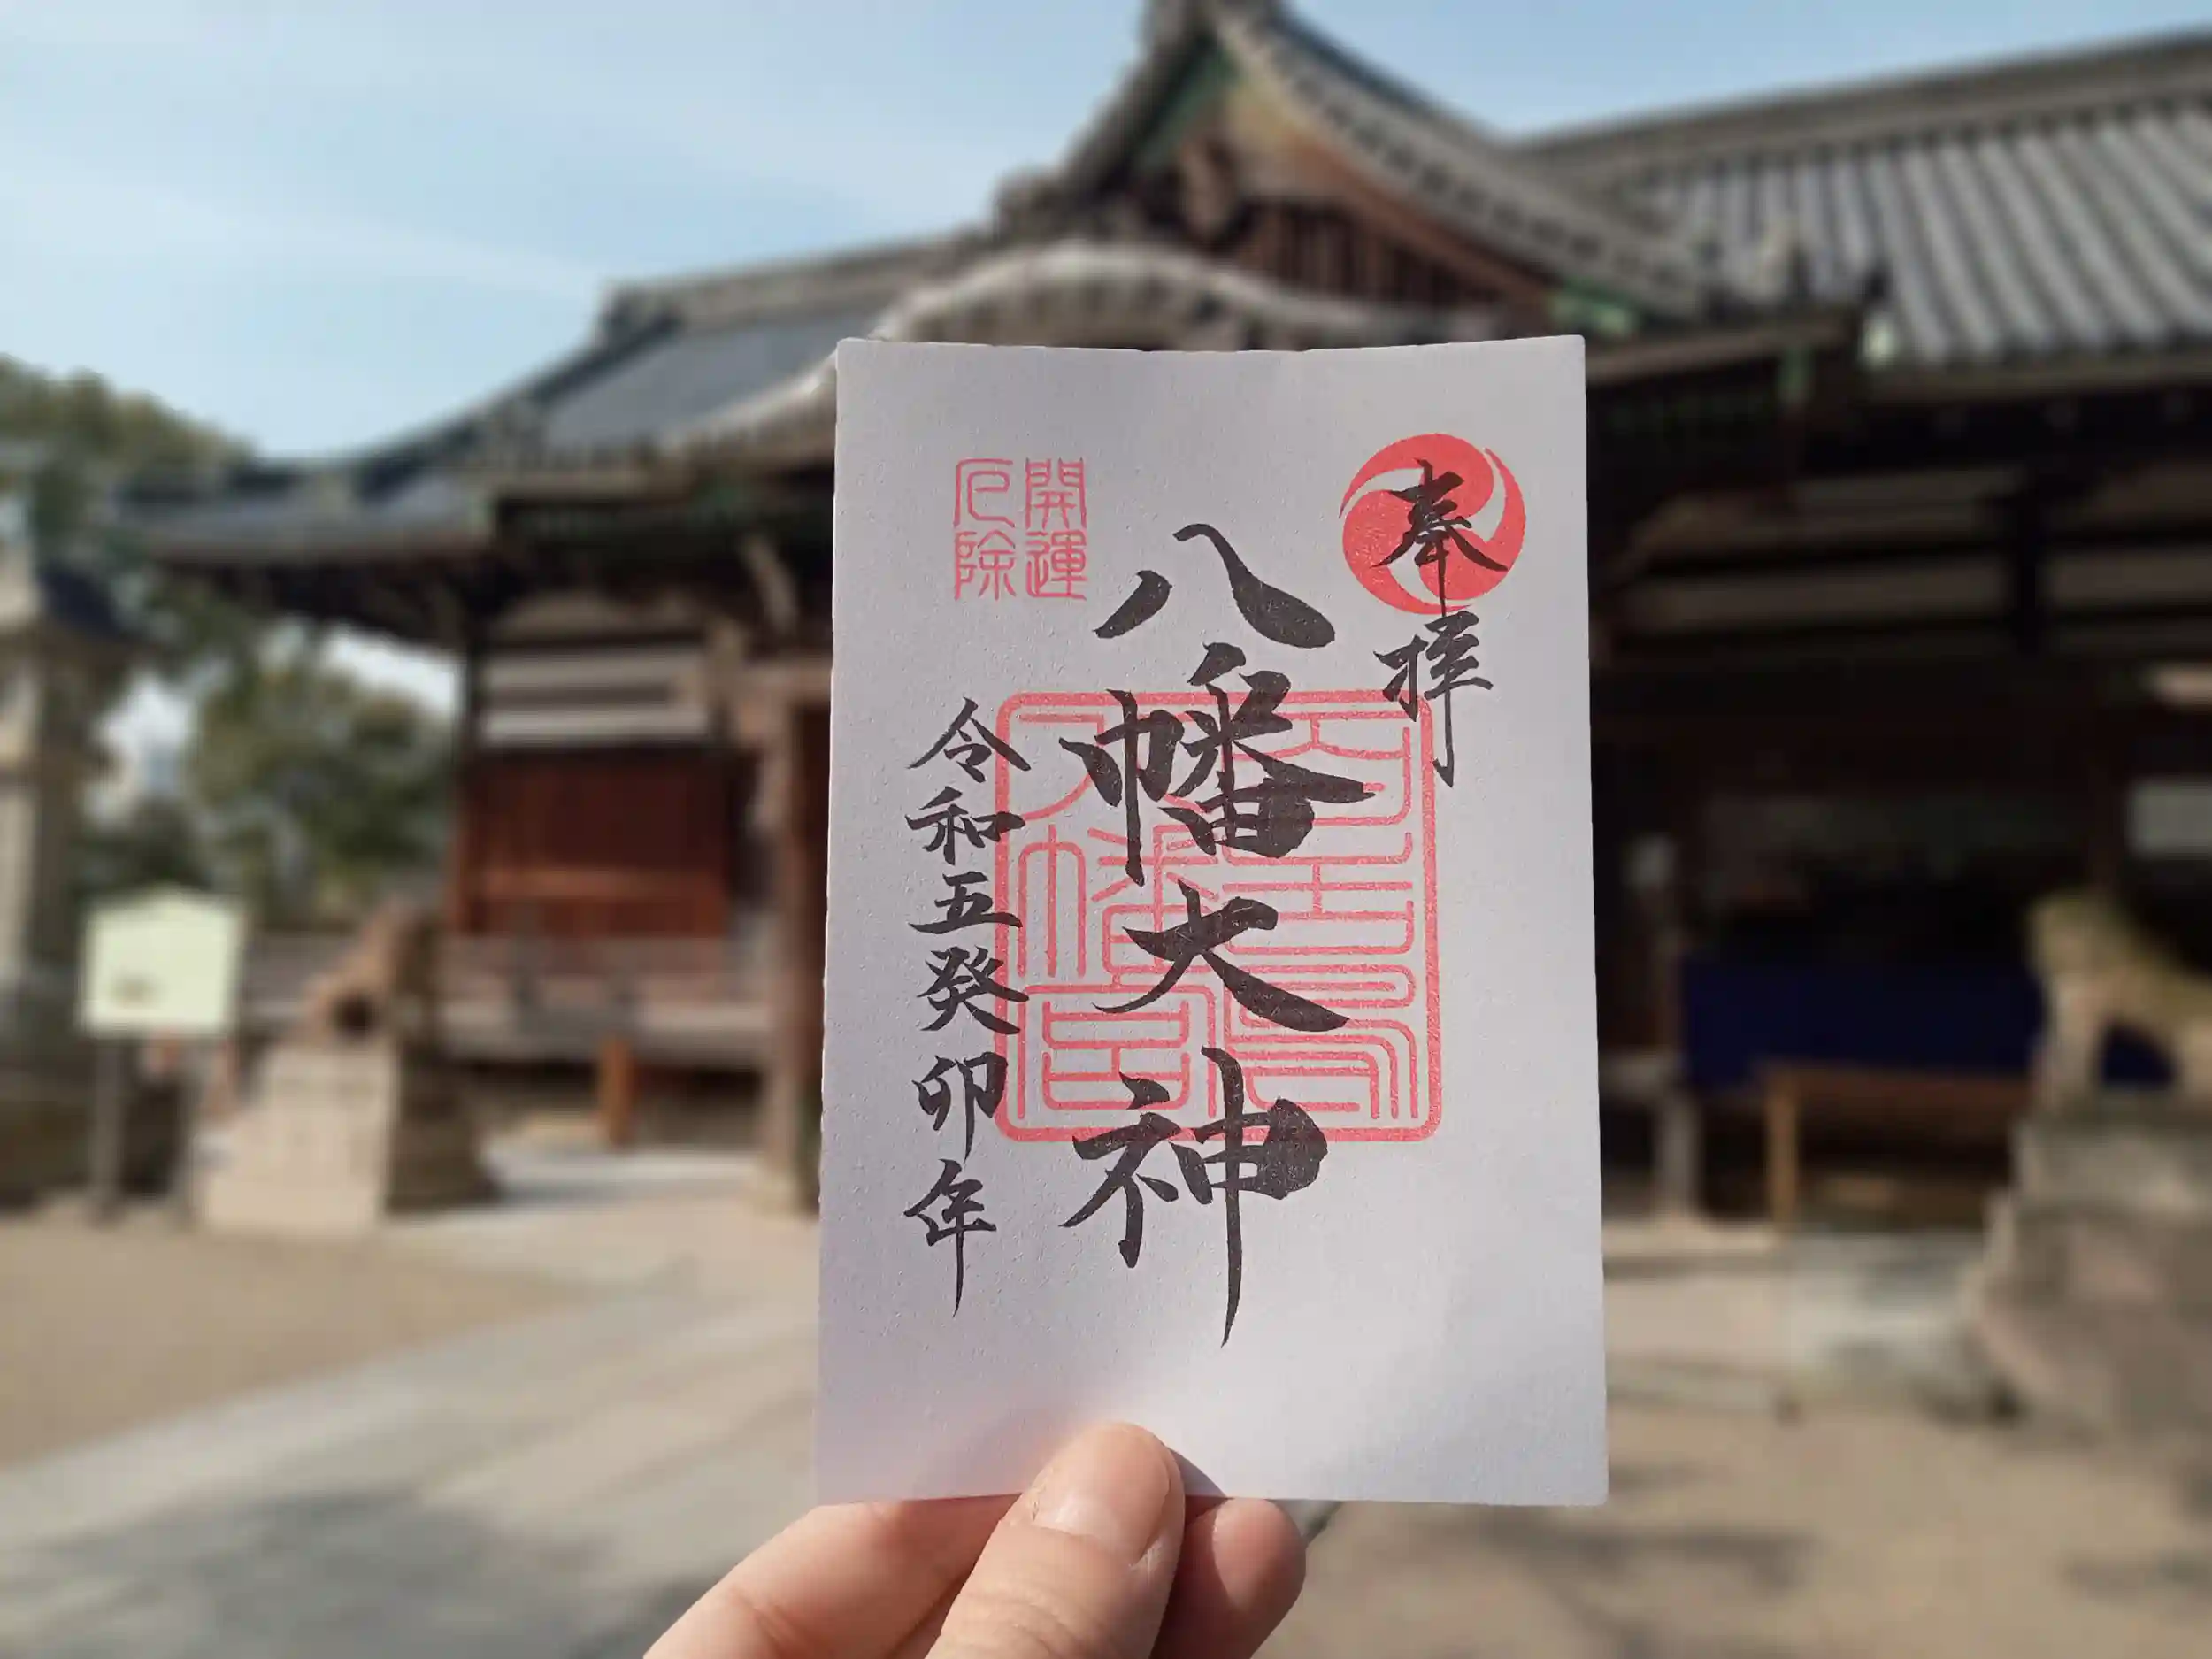 奉拝
八幡大神
百舌鳥
八幡宮
開運
厄除
令和五癸卯年